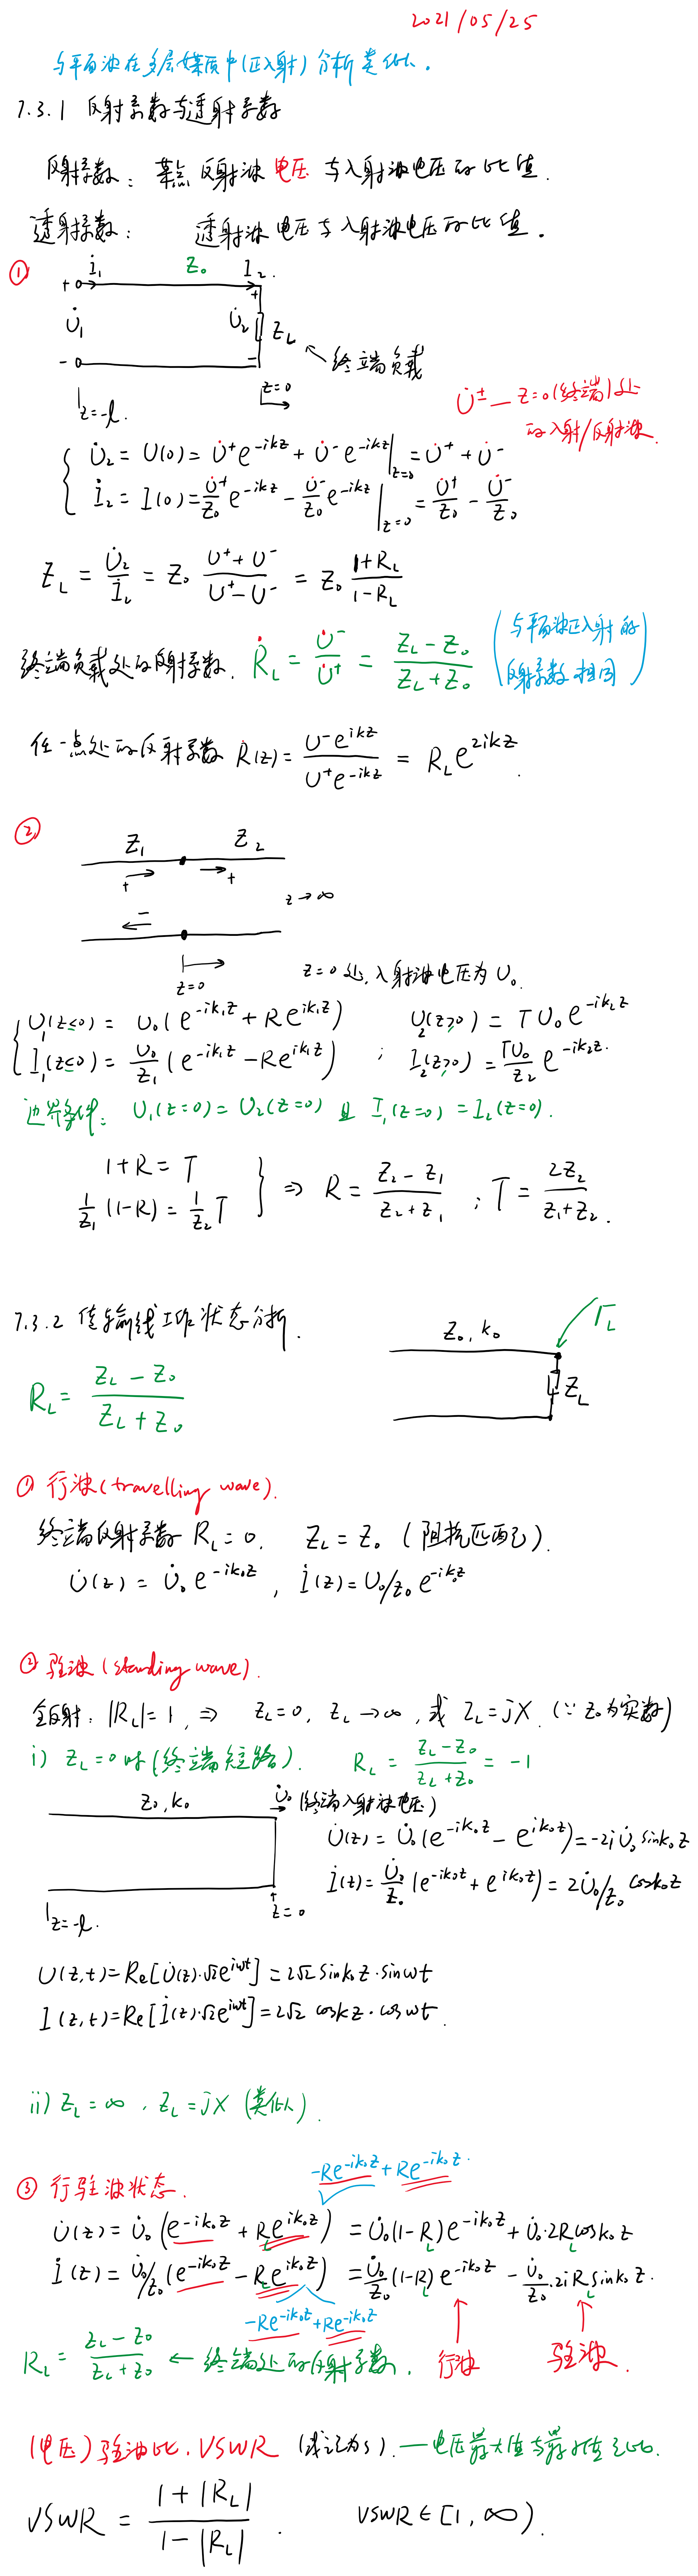 2021/05/25
与平面波在多层媒质中(正入射)分析类似.
7.3.1 反射系数与透射系数
反射系数: 某点反射波电压与入射波电压的比值.
透射系数: 透射波电压与入射波电压的比值.
①
İ₁ Z₀ I₂
+ +
U̇₁ U̇₂ Z_L
- -
终端负载
z=-l z=0
U̇± — z=0(终端)处
的入射/反射波
U̇₂ = U(0) = U̇⁺e^{-ikz} + U̇⁻e^{-ikz}|_{z=0} = U̇⁺ + U̇⁻
İ₂ = I(0) = U̇⁺/Z₀ e^{-ikz} - U̇⁻/Z₀ e^{-ikz}|_{z=0} = U̇⁺/Z₀ - U̇⁻/Z₀
Z_L = U̇₂/I_L = Z₀ (U⁺+U⁻)/(U⁺-U⁻) = Z₀ (1+R_L)/(1-R_L)
终端负载处的反射系数. Ṙ_L = U̇⁻/U̇⁺ = (Z_L-Z₀)/(Z_L+Z₀)
(与平面波正入射的
反射系数相同)
任一点处的反射系数 R(z) = U⁻e^{ikz}/U⁺e^{-ikz} = R_L e^{2ikz}.
②
Z₁ Z₂
+ +
z→∞
-
z=0
z=0处,入射波电压为U₀.
U₁(z≤0) = U₀(e^{-ik₁z} + Re^{ik₁z}) U₂(z≥0) = TU₀e^{-ik₂z}
I₁(z≤0) = U₀/Z₁ (e^{-ik₁z} - Re^{ik₁z}) ; I₂(z≥0) = TU₀/Z₂ e^{-ik₂z}.
边界条件: U₁(z=0) = U₂(z=0) 且 I₁(z=0) = I₂(z=0).
1+R = T
1/Z₁ (1-R) = 1/Z₂ T } ⇒ R = (Z₂-Z₁)/(Z₂+Z₁) ; T = 2Z₂/(Z₁+Z₂).
7.3.2 传输线工作状态分析.
R_L = (Z_L-Z₀)/(Z_L+Z₀)
Z₀, k₀ Γ_L
Z_L
① 行波(travelling wave).
终端反射系数 R_L=0. Z_L=Z₀ (阻抗匹配).
U̇(z) = U̇₀e^{-ik₀z}, İ(z) = U₀/Z₀ e^{-ik₀z}
② 驻波(standing wave).
全反射: |R_L|=1, ⇒ Z_L=0, Z_L→∞, 或 Z_L=jX. (∵ Z₀为实数)
i) Z_L=0时(终端短路). R_L = (Z_L-Z₀)/(Z_L+Z₀) = -1
Z₀, k₀ U̇₀(终端入射波电压)
U̇(z) = U̇₀(e^{-ik₀z} - e^{ik₀z}) = -2iU̇₀ sink₀z
İ(z) = U̇₀/Z₀ (e^{-ik₀z} + e^{ik₀z}) = 2U̇₀/Z₀ cosk₀z
z=-l. z=0
U(z,t) = Re[U̇(z)·√2e^{iωt}] = 2√2 sink₀z·sinωt
I(z,t) = Re[İ(z)·√2e^{iωt}] = 2√2 coskz·cosωt.
ii) Z_L=∞, Z_L=jX (类似).
③ 行驻波状态.
-Re^{-ik₀z} + Re^{-ik₀z}
U̇(z) = U̇₀(e^{-ik₀z} + R_L e^{ik₀z}) = U̇₀(1-R_L)e^{-ik₀z} + U̇₀·2R_L cosk₀z
İ(z) = U̇₀/Z₀ (e^{-ik₀z} - R_L e^{ik₀z}) = U̇₀/Z₀ (1-R_L)e^{-ik₀z} - U̇₀/Z₀·2iR_L sink₀z.
-Re^{-ik₀z} + Re^{-ik₀z}
R_L = (Z_L-Z₀)/(Z_L+Z₀) ← 终端处的反射系数. 行波 驻波.
(电压)驻波比. VSWR (或记为s). — 电压最大值与最小值之比.
VSWR = (1+|R_L|)/(1-|R_L|). VSWR∈[1,∞).